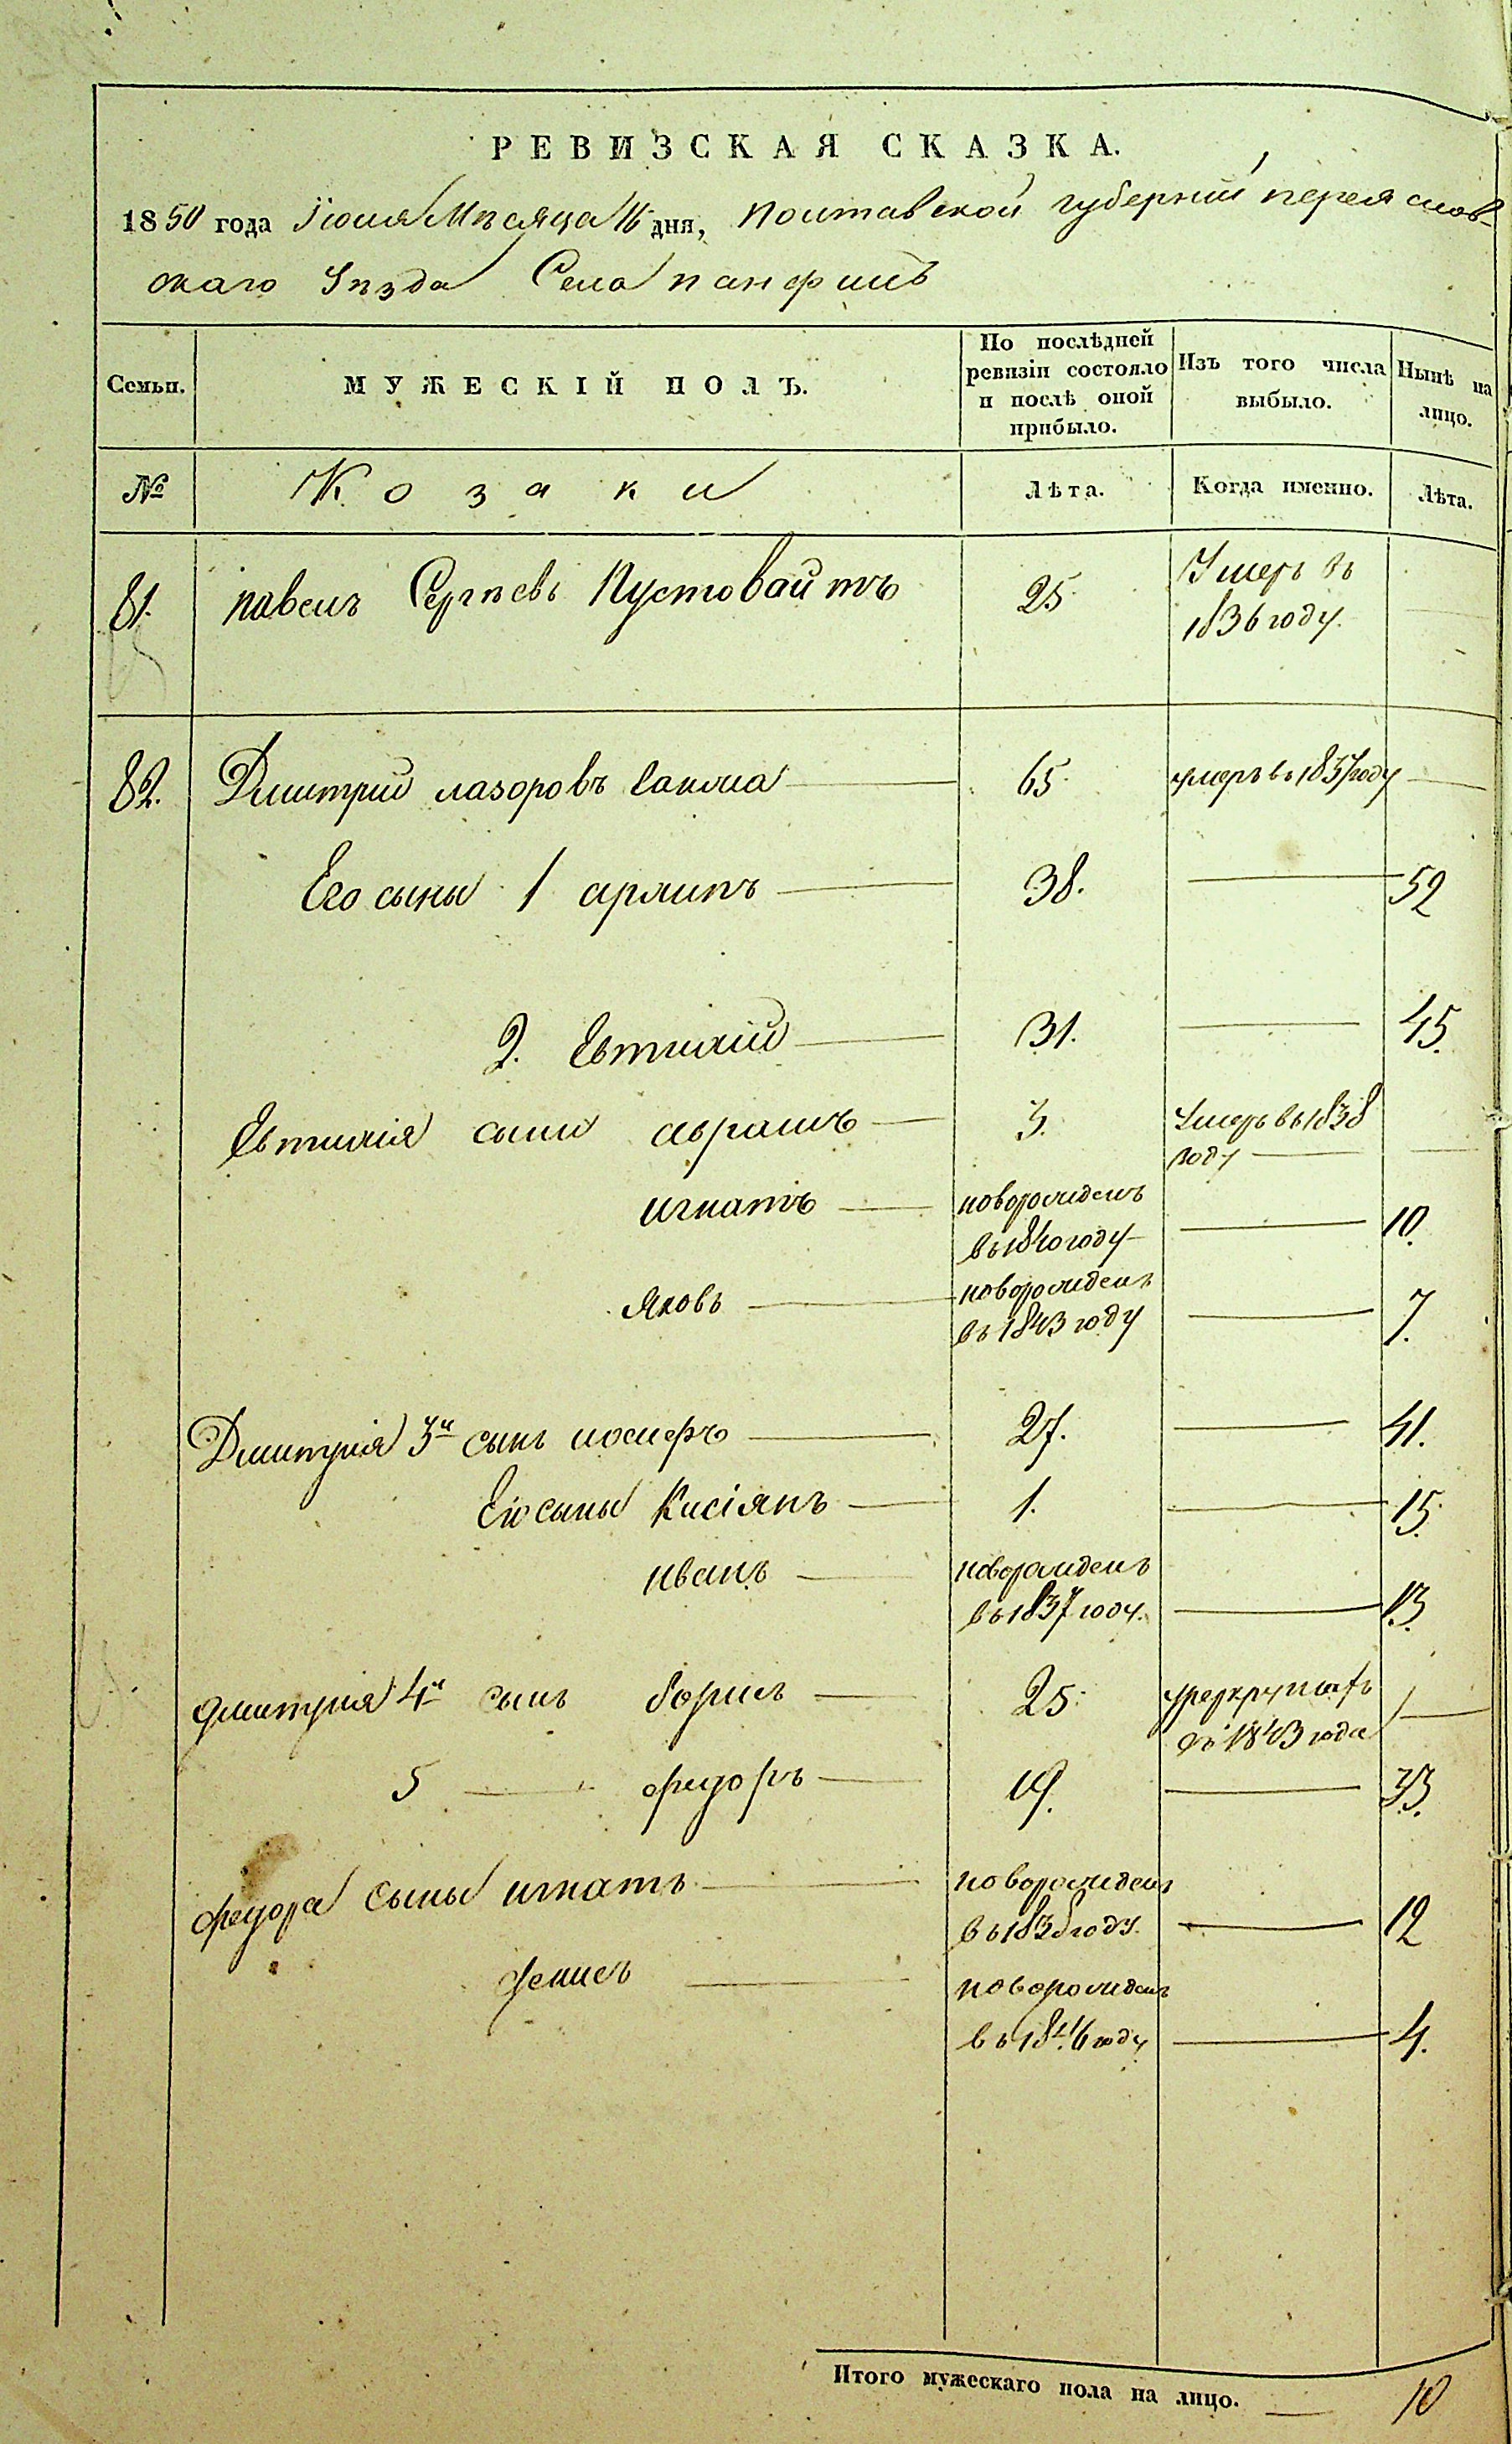 РЕВИЗСКАЯ СКАЗКА.
1850 года Іюля Мѣсяца 16 дня, Полтавской губерніи переяслов-
скаго Уѣзда Села панфилъ
Семьи.
МУЖЕСКІЙ ПОЛЪ.
По послѣдней ревизіи состояло и послѣ оной прибыло.
Изъ того числа выбыло.
Нынѣ на лицо.
№ Козаки Лѣта. Когда именно. Лѣта.
81. павелъ Сергѣевъ Пустовайтъ 25 Умеръ въ
1836 году.
82. Дмитрій лазоровъ 65 умеръ въ 1837 году
Его сыны 1 архипъ 38. 52
2. Евтихій 31. 45.
Евтихія сыны аврамъ 3. Умеръ въ 1838
году
игнатъ новорожденъ
въ 1840 году 10.
яковъ новорожденъ
въ 1843 году 7.
Дмитрія 3й сынъ иосифъ 27. 41.
Его сыны Касіянъ 1. 15.
иванъ новорожденъ
въ 1837 году. 13.
дмитрія 4й сынъ борисъ 25.
въ 1843 года
5 федоръ 19. 33.
федора сыны игнатъ новорожденъ
въ 1838 году. 12
денисъ новорожденъ
въ 1846 году 4.
Итого мужескаго пола на лицо. 10